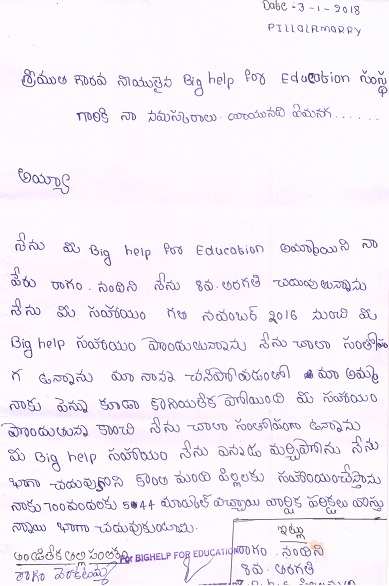 Date - 3 - 1 - 2018
PILLALAMARRY
శ్రీయుత గౌరవ నాయులైన Big help For Education సంస్థ
గారికి నా నమస్కారాలు. వ్రాయునది ఏమనగ......
అయ్యా
నేను మీ Big help For Education అమ్మాయిని నా
పేరు రాగం. నందిని నేను 8వ. తరగతి చదువుతున్నాను
నేను మీ సహాయం గత నవంబర్ 2016 నుంచి మీ
Big help సహాయం పొందుతున్నాను నేను చాలా సంతోషం
గ ఉన్నాను మా నాన్న చనిపోవడంతో మా అమ్మ
నాకు పెన్ను కూడా కొనియలేక పోయింది మీ సహాయం
పొందుతున్న కాంచి నేను చాలా సంతోషంగా ఉన్నాను
మీ Big help సహాయం నేను ఎపుడు మర్చిపోను నేను
బాగా చదువుకుని కొంత మంది పిల్లలకు సహాయంచేస్తాను
నాకు 700వందలకు 544 మార్కులే వచ్చాయి వార్షిక పరీక్షలు వస్తు
న్నాయి బాగా చదువుకుంటాను.
ఇట్లు
For BIGHELP FOR EDUCATION
రాగం. నందిని
రాగం
8వ. తరగతి